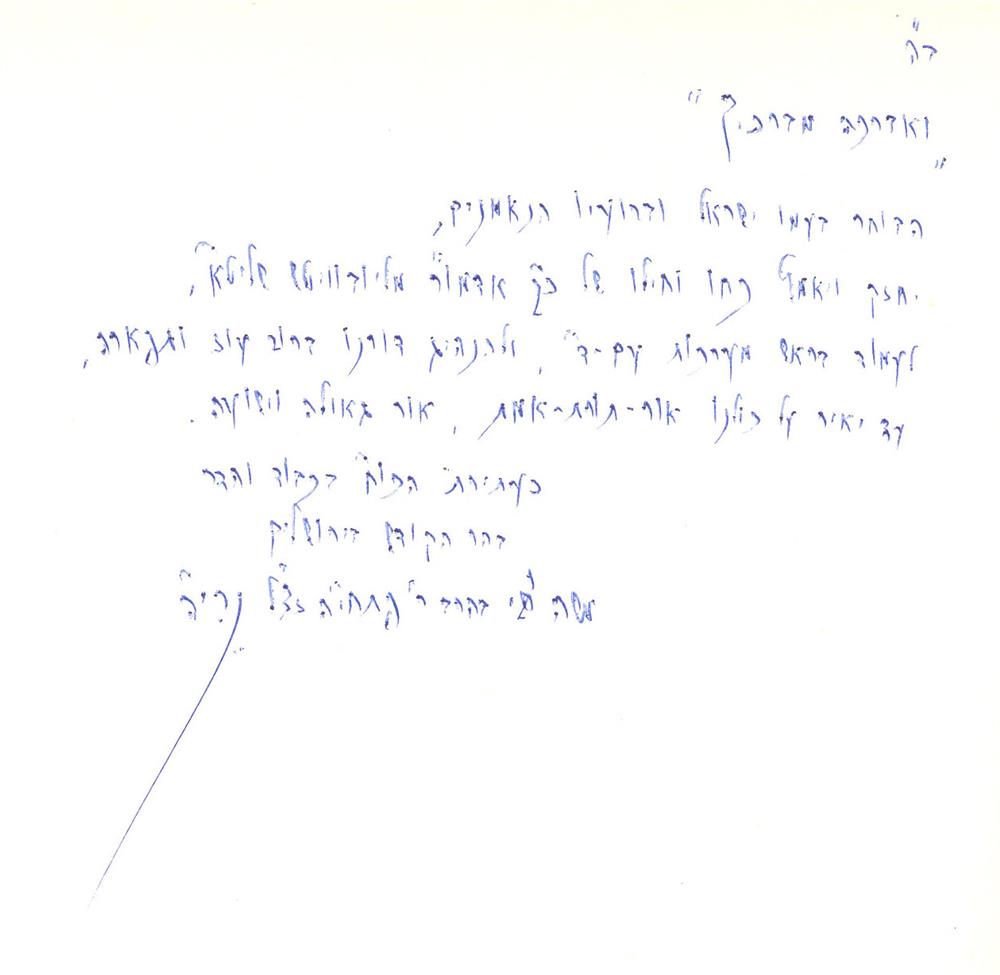 ב"ה
"ואברכה מברכיך"
הבוחר בעמו ישראל וברועיו הנאמנים,
יחזק ויאמץ כחו וחילו של כ"ק אדמו"ר מליובוויטש שליט"א,
לעמוד בראש מערכות עם-ד', ולהנהיג דורנו ברוב עוז ותפארת,
עד יאיר על כולנו אור-תורת-אמת, אור גאולה וישועה.
כעתירת החו"פ בכבוד והדר
בהר הקודש בירושלים
משה צבי בהרב ר' פתחי'ה זצ"ל נרי"ה